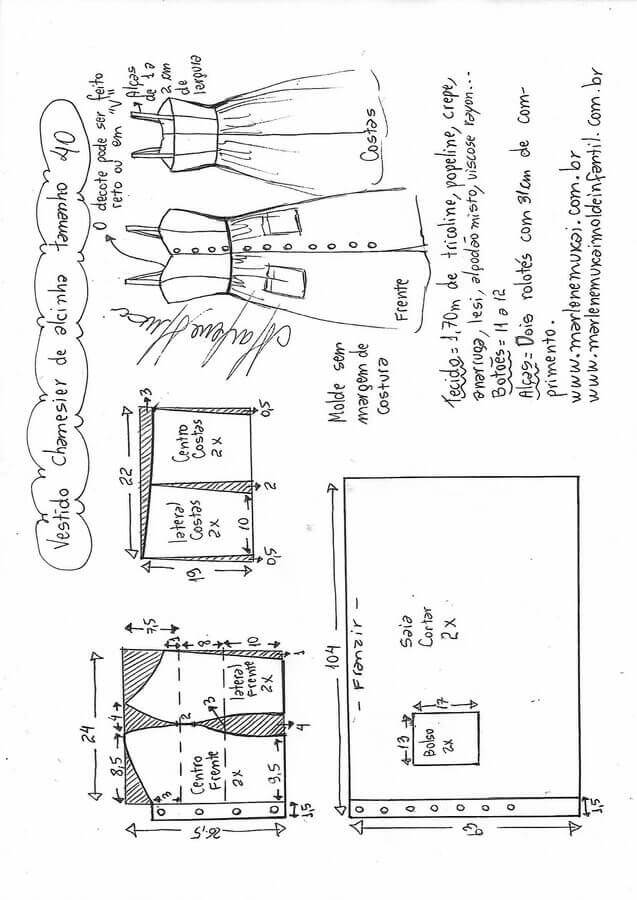 Vestido Chamesier de alcinha tamanho 40
O decote pode ser feito
reto ou em "V"
Alças
de 1 a
2 cm
de
largura
Frente
Costas
Marlene Mukai
Molde sem
margem de
costura
Tecido = 1,70m de tricoline, popeline, crepe,
anarruga, lesi, algodão misto, viscose rayon...
Botões = 11 a 12
Alças = Dois rolotés com 31cm de com-
primento.
www.marlenemukai.com.br
www.marlenemukaimoldeinfantil.com.br
24
8,5
4
7,5
1
8
10
3
2
3
26,5
Centro
Frente
2x
lateral
Frente
2x
9,5
4
1
1,5
22
3
19
lateral
Costas
2x
Centro
Costas
2x
0,5
10
2
0,5
104
- Franzir -
13
17
Bolso
2x
Saia
Cortar
2x
1,5